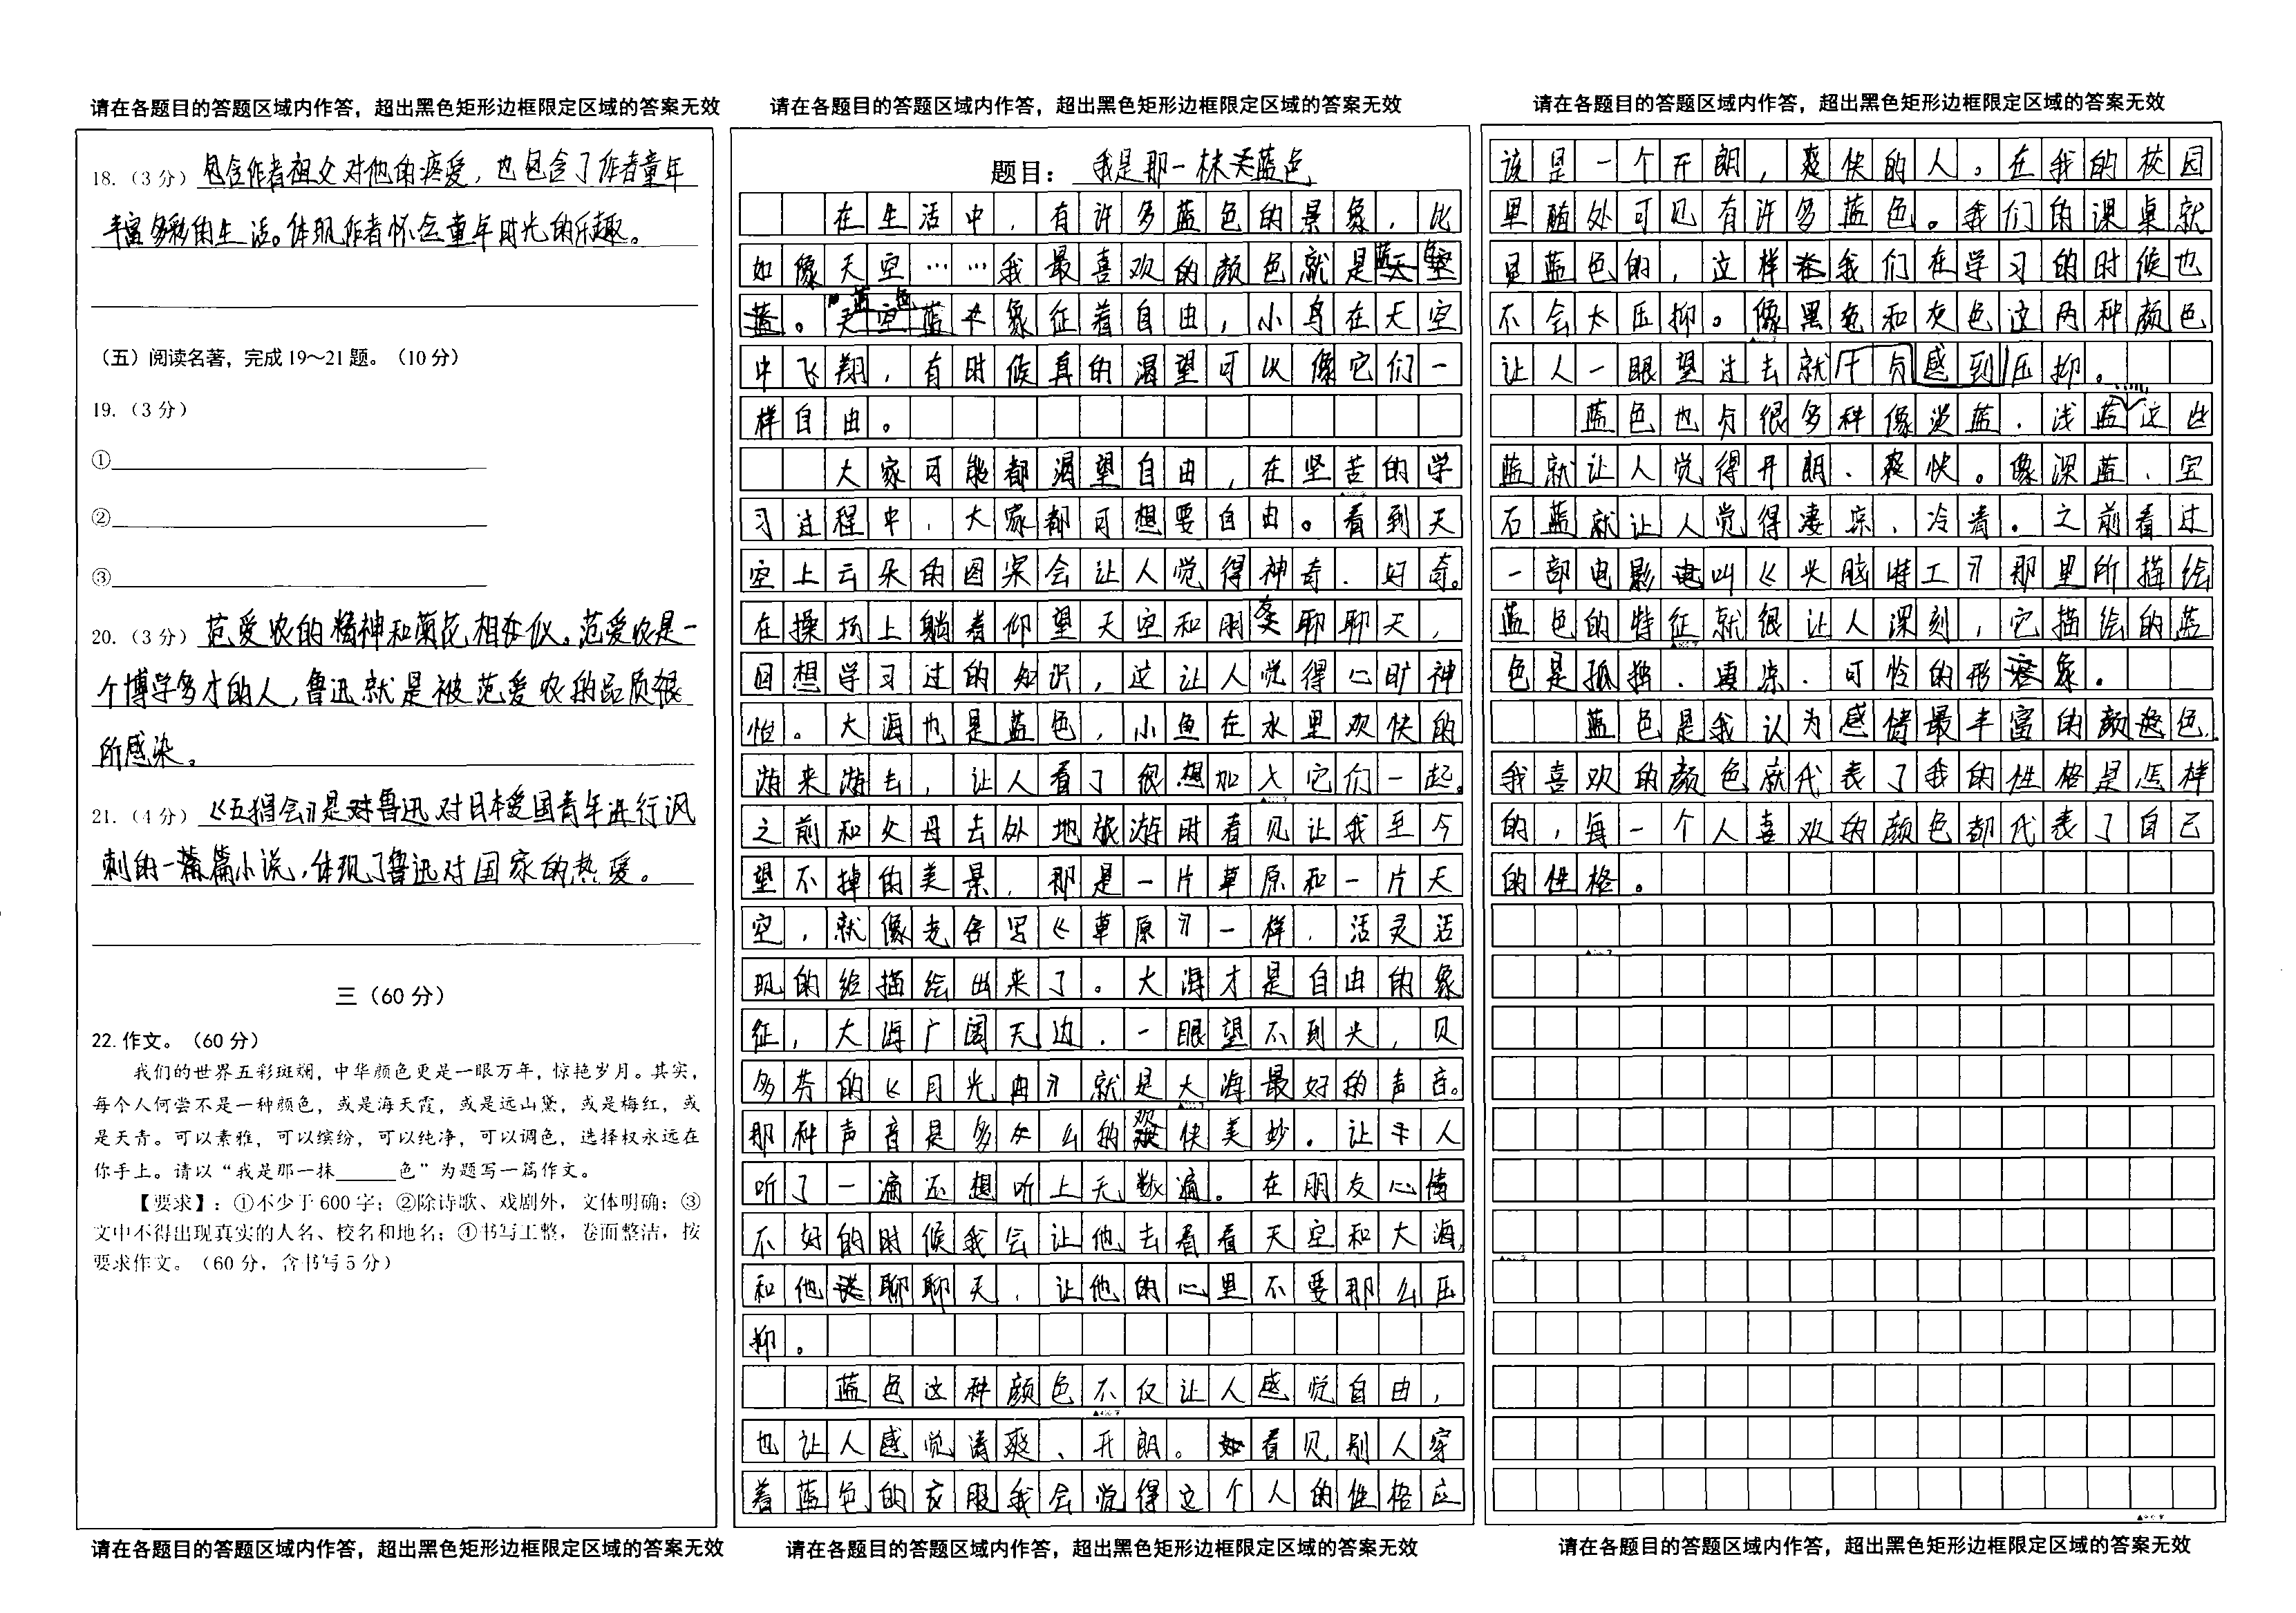 请在各题目的答题区域内作答，超出黑色矩形边框限定区域的答案无效
18.（3 分）包含作者祖父对他的疼爱，也包含了作者童年
丰富多彩的生活。体现作者怀念童年时光的乐趣。
（五）阅读名著，完成 19～21 题。（10 分）
19.（3 分）
①
②
③
20.（3 分）范爱农的精神和菊花相变似。范爱农是一
个博学多才的人，鲁迅就是被范爱农的品质很
所感染。
21.（4 分）《五猖会》是对鲁迅对日本爱国青年进行讽
刺的一篇篇小说，体现了鲁迅对国家的热爱。
三（60 分）
22.作文。（60 分）
我们的世界五彩斑斓，中华颜色更是一眼万年，惊艳岁月。其实，
每个人何尝不是一种颜色，或是海天霞，或是远山黛，或是梅红，或
是天青。可以素雅，可以缤纷，可以纯净，可以调色，选择权永远在
你手上。请以“我是那一抹______色”为题写一篇作文。
【要求】：①不少于 600 字；②除诗歌、戏剧外，文体明确；③
文中不得出现真实的人名、校名和地名；④书写工整，卷面整洁，按
要求作文。（60 分，含书写 5 分）
请在各题目的答题区域内作答，超出黑色矩形边框限定区域的答案无效
请在各题目的答题区域内作答，超出黑色矩形边框限定区域的答案无效
题目：我是那一抹天蓝色
在生活中，有许多蓝色的景象，比
如像天空……我最喜欢的颜色就是蓝色
。蓝色象征着自由，小鸟在天空
中飞翔，有时候真的渴望可以像它们一
样自由。
大家可能都渴望自由，在坚苦的学
习过程中，大家都可想要自由。看到天
空上云朵的图案会让人觉得神奇、好奇。
在操场上躺着仰望天空和朋友聊聊天，
回想学习过的知识，这让人觉得心旷神
怡。大海也是蓝色，小鱼在水里欢快的
游来游去，让人看了很想加入它们一起。
之前和父母去外地旅游时看见让我至今
望不掉的美景，那是一片草原和一片天
空，就像老舍写《草原》一样，活灵活
现的给描绘出来了。大海才是自由的象
征，大海广阔天边，一眼望不到头，贝
多芬的《月光曲》就是大海最好的声音。
那种声音是多么的欢快美妙。让人
听了一遍还想听上无数遍。在朋友心情
不好的时候我会让他去看看天空和大海，
和他聊聊天，让他的心里不要那么压
抑。
蓝色这种颜色不仅让人感觉自由，
也让人感觉清爽、开朗。看见别人穿
着蓝色的衣服我会觉得这个人的性格应
请在各题目的答题区域内作答，超出黑色矩形边框限定区域的答案无效
请在各题目的答题区域内作答，超出黑色矩形边框限定区域的答案无效
该是一个开朗，爽快的人。在我的校园
里随处可见有许多蓝色。我们的课桌就
是蓝色的，这样我们在学习的时候也
不会太压抑。像黑色和灰色这两种颜色
让人一眼望过去就感到压抑。
蓝色也有很多种像淡蓝、浅蓝这些
蓝就让人觉得开朗、爽快。像深蓝、宝
石蓝就让人觉得凄凉、冷清。之前看过
一部电影叫《头脑特工》那里所描绘
蓝色的特征就很让人深刻，它描绘的蓝
色是孤独、凄凉、可怜的形象。
蓝色是我认为感情最丰富的颜色，
我喜欢的颜色就代表了我的性格是怎样
的，每一个人喜欢的颜色都代表了自己
的性格。
请在各题目的答题区域内作答，超出黑色矩形边框限定区域的答案无效